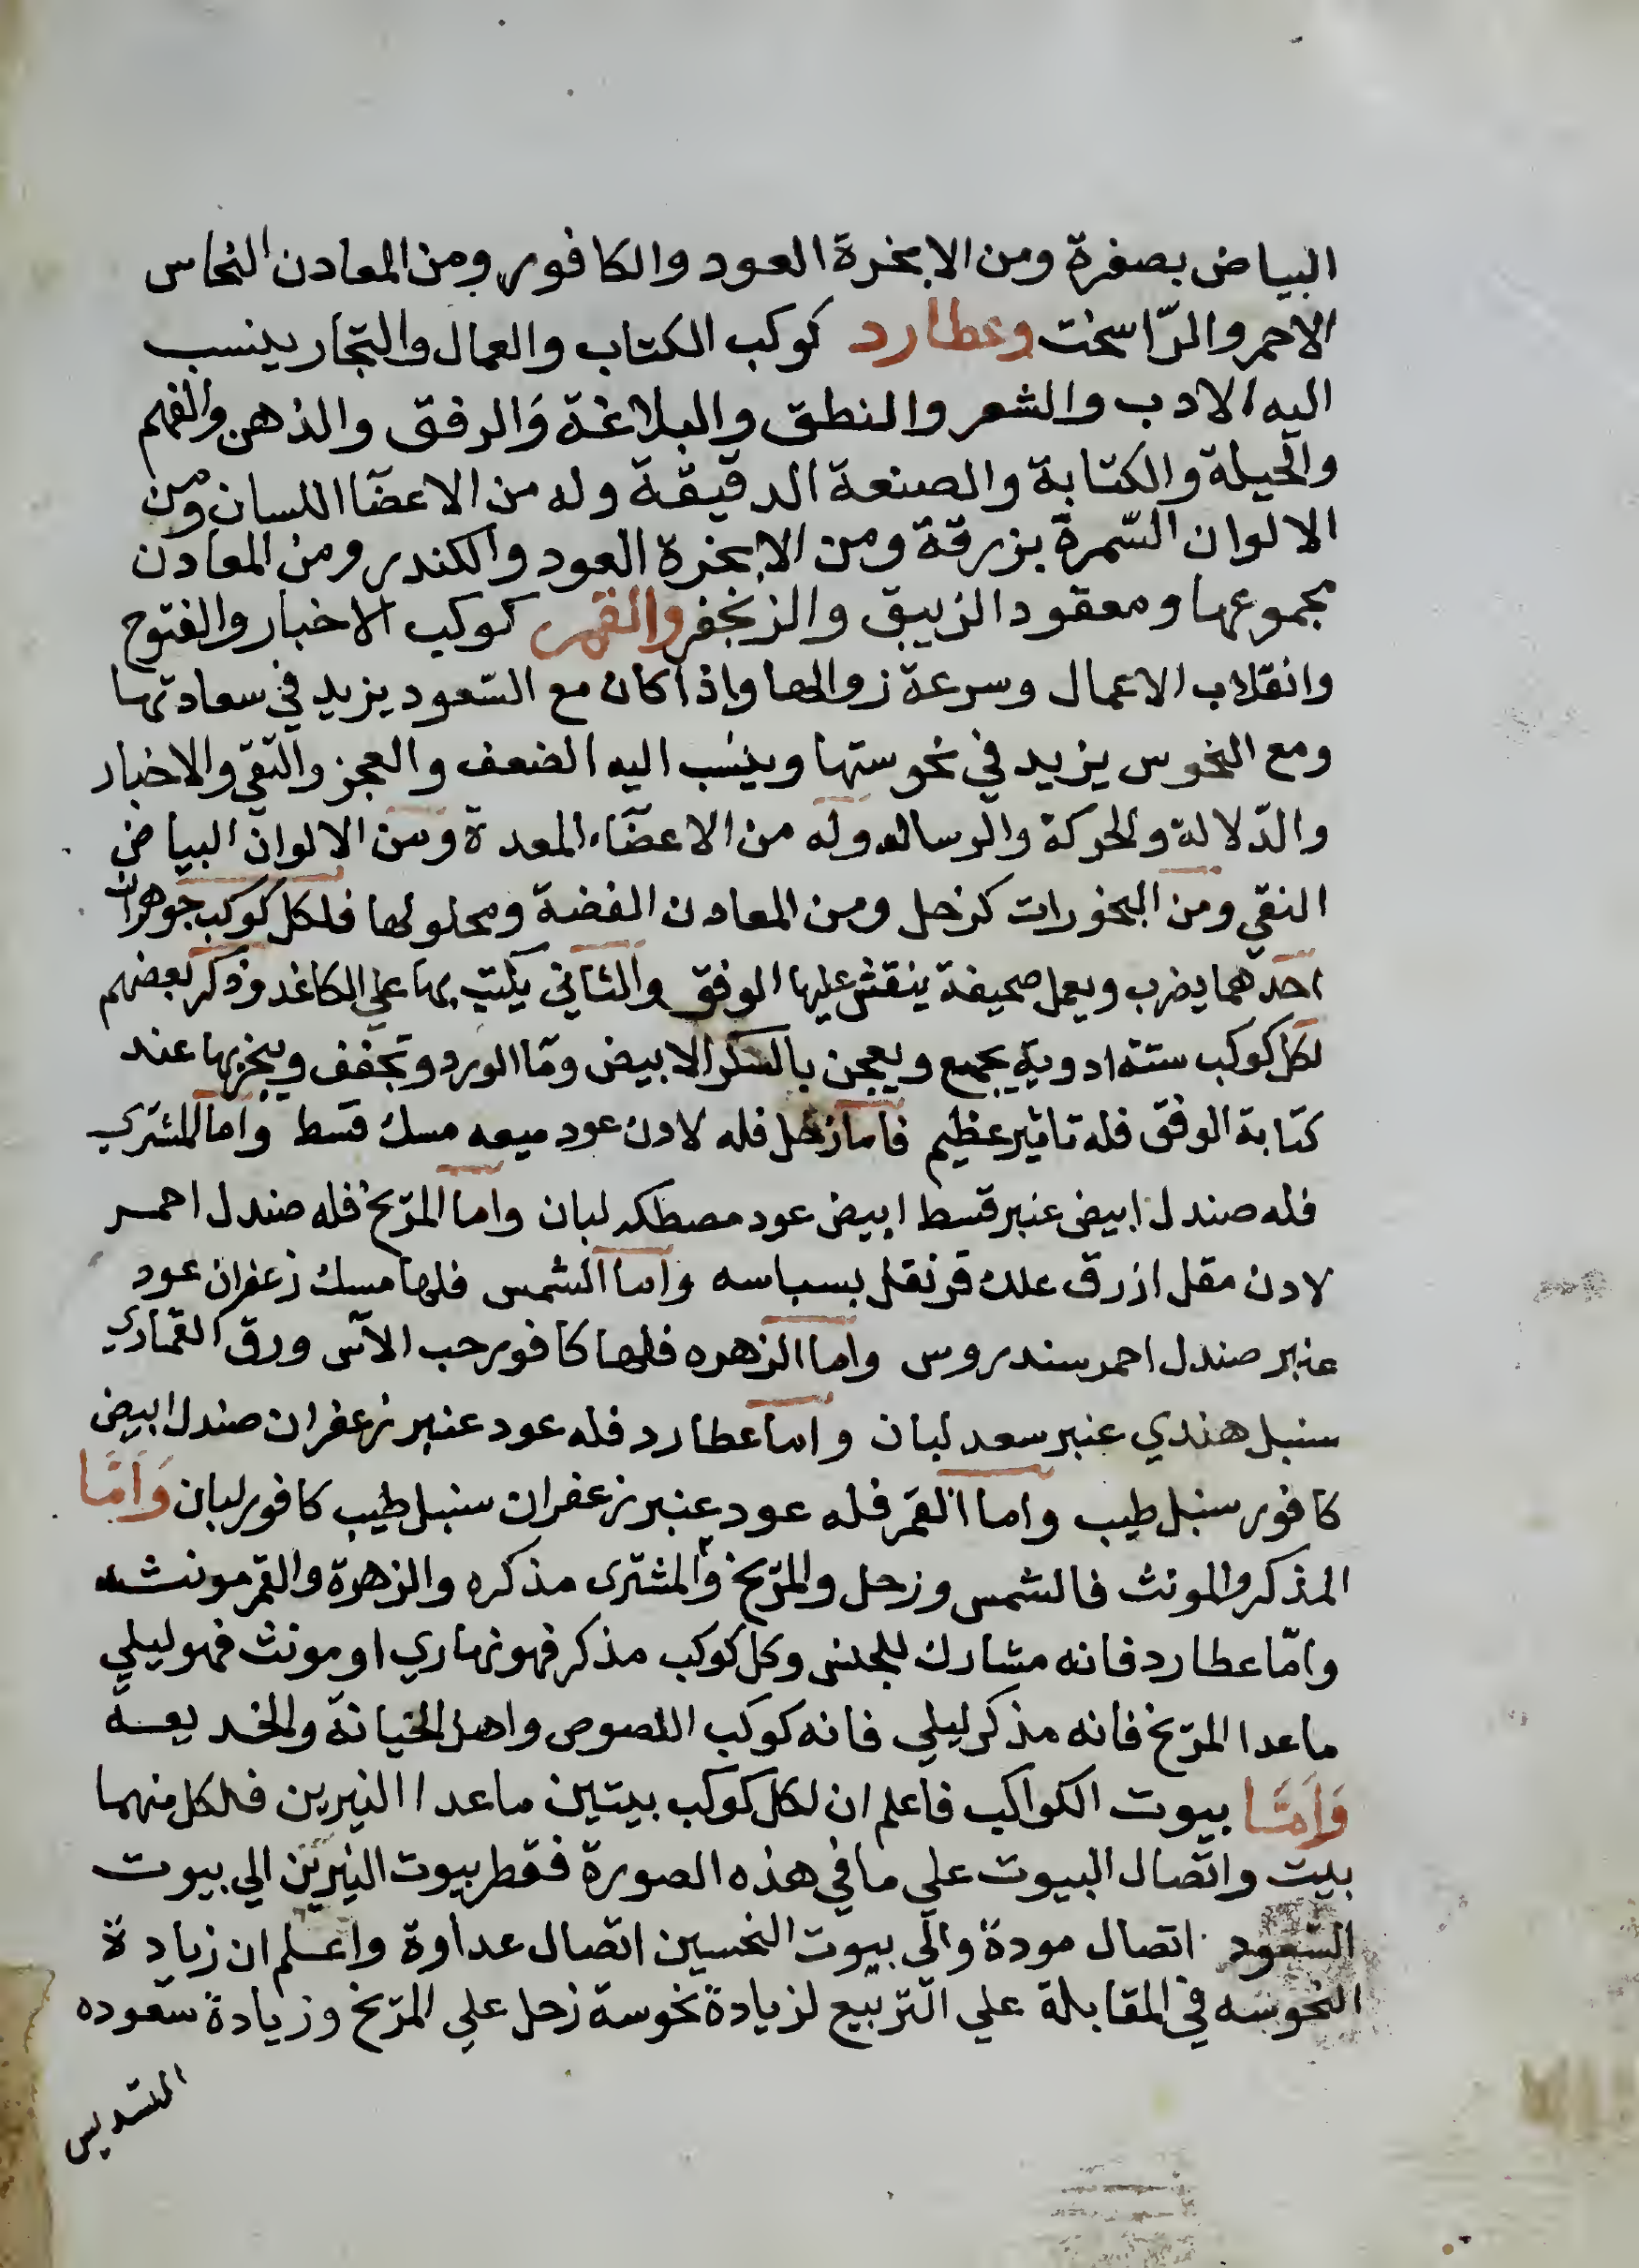 البياض بصفرة ومن الابخرة العود والكافور ومن المعادن النحاس
الاحمر والرّاسخت وعطارد كوكب الكتاب والعمال والتجار ينسب
اليه الادب والشعر والنطق والبلاغة والرفق والذهن والفهم
والحيلة والكتابة والصنعة الدقيقة وله من الاعضا اللسان ومن
الالوان السّمرة بزرقة ومن الابخرة العود والكندر ومن المعادن
مجموعها ومعقود الزيبق والزنجفر والقمر كوكب الاخبار والفتوح
وانقلاب الاعمال وسرعة زوالها واذا كان مع السّعود يزيد في سعادتها
ومع النحوس يزيد في نحوستها وينسب اليه الضعف والعجز والتقي والاخبار
والدّلالة والحركة والرساله وله من الاعضاء المعدة ومن الالوان البياض
النقي ومن البخورات كزحل ومن المعادن الفضة ومحلولها فلكل كوكب جوهران
احدهما يضرب ويعمل صحيفة ينقش عليها الوفق والثاني يكتب بها علي الكاغد وذكر بعضهم
لكل كوكب ستة ادوية يجمع ويعجن بالسكر الابيض وما الورد وتجفف ويبخر بها عند
كتابة الوفق فله تاثير عظيم فاما زحل فله لادن عود ميعه مسك قسط واما المشتري
فله صندل ابيض عنبر قسط ابيض عود مصطكه لبان واما المرّيخ فله صندل احمر
لادن مقل ازرق علك قرنفل بسباسه واما الشمس فلها مسك زعفران عود
عنبر صندل احمر سندروس واما الزهره فلها كافور حب الآس ورق القماري
سنبل هندي عنبر سعد لبان واما عطارد فله عود عنبر زعفران صندل ابيض
كافور سنبل طيب واما القمر فله عود عنبر زعفران سنبل طيب كافور لبان وَاَمَّا
المذكر والمونث فالشمس وزحل والمرّيخ والمشترى مذكره والزهرة والقمر مونثه
وامّا عطارد فانه مشارك للجنس وكل كوكب مذكر فهو نهاري او مونث فهو ليلي
ماعدا المرّيخ فانه مذكر ليلي فانه كوكب اللصوص واهل الخيانة والخديعة
وَاَمَّا بيوت الكواكب فاعلم ان لكل كوكب بيتين ماعدا النيرين فلكل منهما
بيت واتصال البيوت علي ما في هذه الصورة فقطر بيوت النيرين الي بيوت
السّعود اتصال مودة والي بيوت النحسين اتصال عداوة واعلم ان زيادة
النحوسه في المقابلة علي التربيع لزيادة نحوسة زحل علي المرّيخ وزيادة سعوده
التسديس